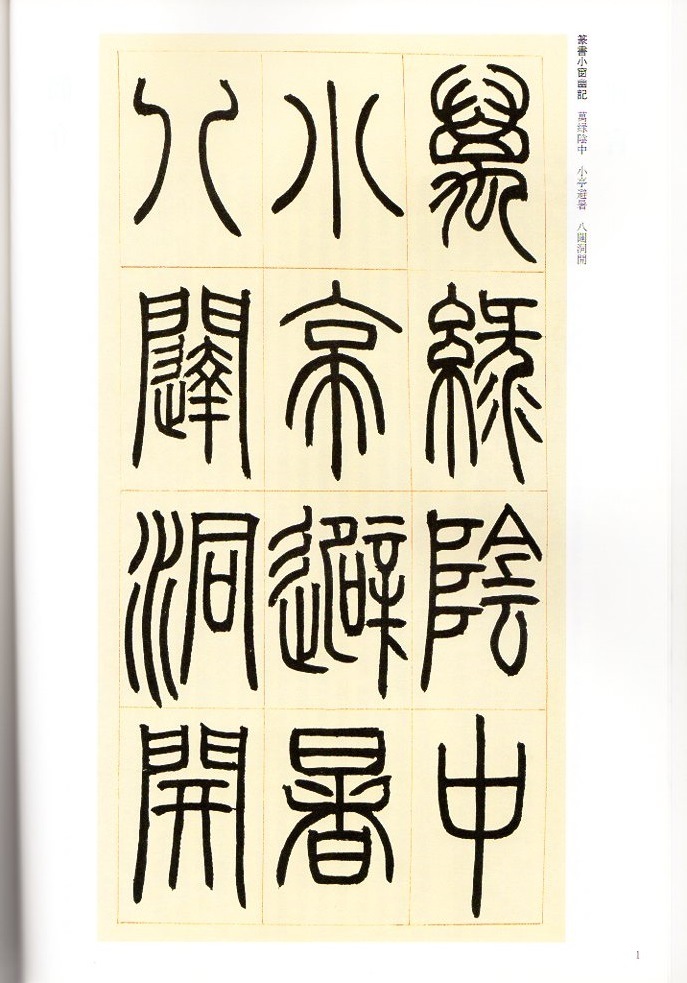 篆書小窗幽記　萬緑陰中　小亭避暑　八闥洞開
萬緑陰中
小亭避暑
八闥洞開
1